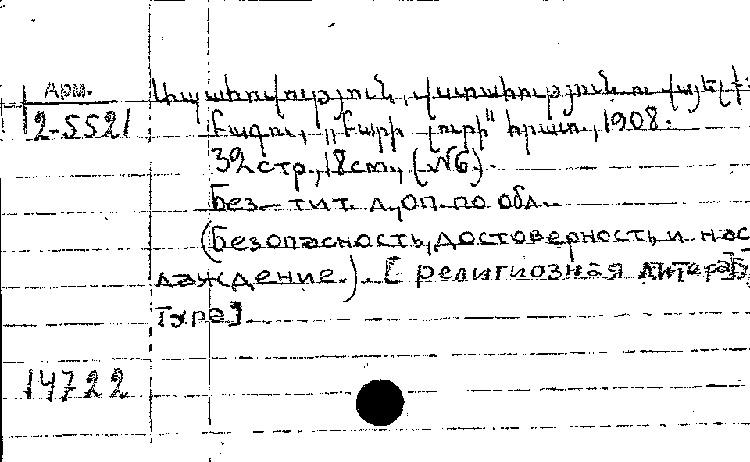 Арм.
2-5521
Ապահովություն, վստահություն ու վայելք.
Բագու, „Բարի լուրի" հրատ., 1908.
32 стр., 18 см., (№6).
Без тит. л., оп. по обл.
(Безопасность, достоверность и нас
лаждение.). [религиозная литера
тура].
14722